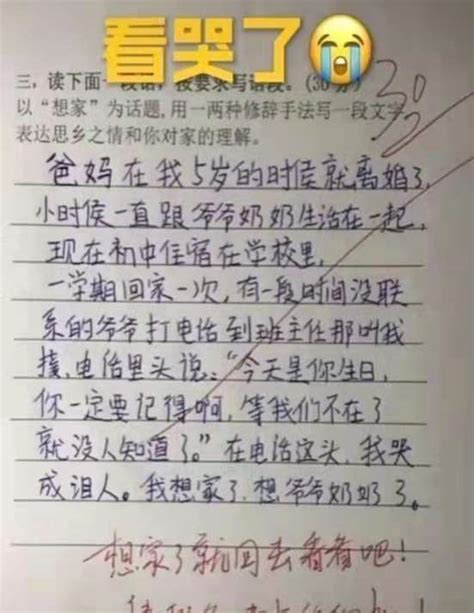 看哭了
三，读下面一段话，按要求写话段。(30分)
30
以“想家”为话题，用一两种修辞手法写一段文字
表达思乡之情和你对家的理解。
爸妈在我5岁的时侯就离婚了
小时侯一直跟爷爷奶奶生活在一起，
现在初中住宿在学校里，
一学期回家一次，有一段时间没联
系的爷爷打电话到班主任那叫我
接，电话里头说：“今天是你生日，
你一定要记得啊，等我们不在了
就没人知道了。”在电话这头，我哭
成泪人。我想家了，想爷爷奶奶了。
想家了就回去看看吧！